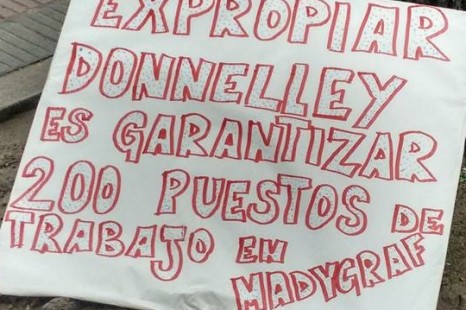 EXPROPIAR
DONNELLEY
ES GARANTIZAR
200 PUESTOS DE
TRABAJO EN
MADYGRAF